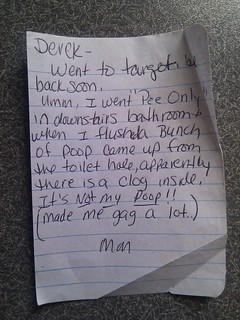 Derek-
Went to target; be
back soon.
Umm, I went "Pee Only"
in downstairs bathroom &
when I flushed a Bunch
of poop came up from
the toilet hole, apparently
there is a clog inside.
It's Not my Poop!!
(made me gag a lot.)
Mom